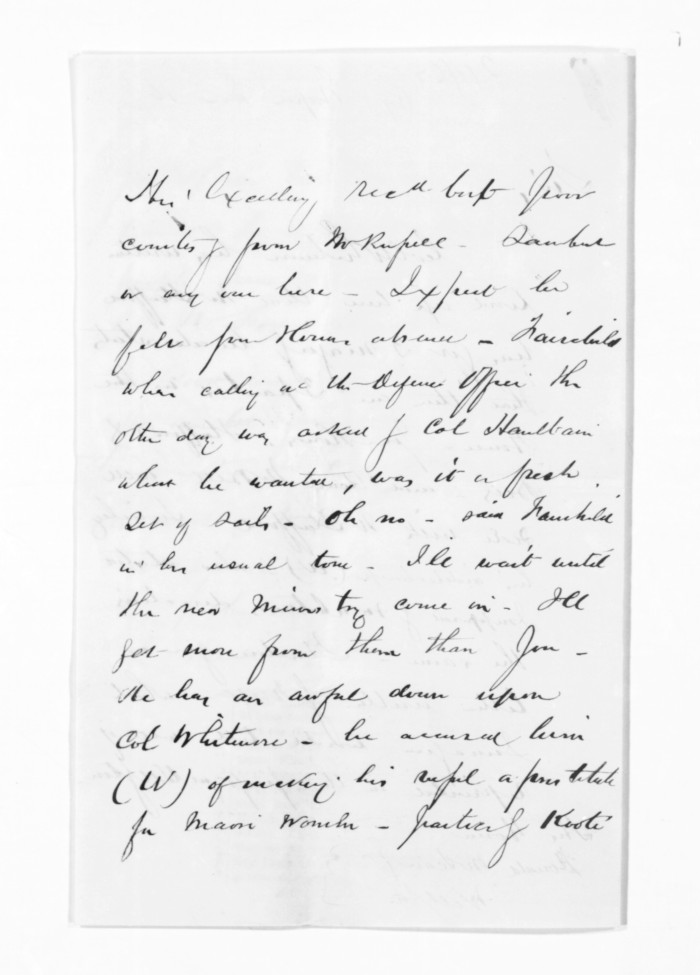 His Excellency recd but poor
courtesy from McRussell - Lambert
or any one here - I expect he
felt your Honors absence - Fairchild
when calling at the Defence Office the
other day, was asked by Col Haultain
what he wanted, was it a fresh
set of sails - Oh no - said Fairchild
in his usual tone - I'll wait until
the new Ministry come in - I'll
get more from them than you -
He has an awful down upon
Col Whitmore - he accused him
(W) of making his vessel a prostitute
for Maori Women - Kooti